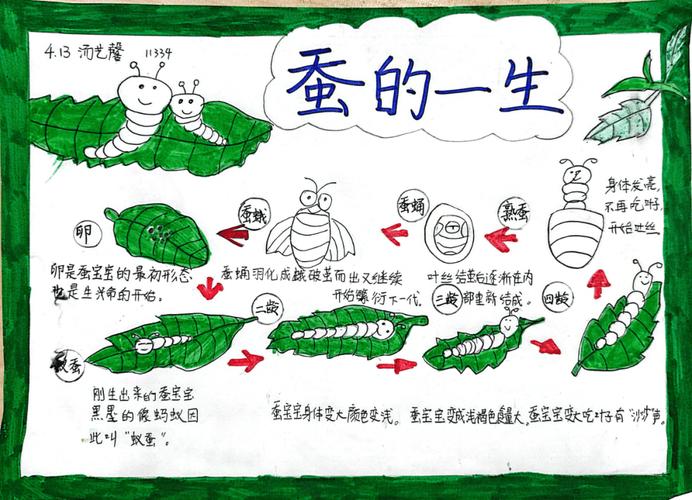 4.13 汤艺馨 11334
蚕的一生
身体发亮,
不再吃叶,
开始吐丝
卵
蚕蛾
蚕蛹
熟蚕
卵是蚕宝宝的最初形态
也是生命的开始。
蚕蛹羽化成蛾破茧而出又继续
开始繁衍下一代
叶丝结茧后逐渐在内
部重新结成。
蚁蚕
二龄
三龄
四龄
刚生出来的蚕宝宝
黑墨的像蚂蚁因
此叫“蚁蚕”。
蚕宝宝身体变大颜色变浅。
蚕宝宝变成浅褐色
蚕宝宝变大吃叶子有“沙沙”声。